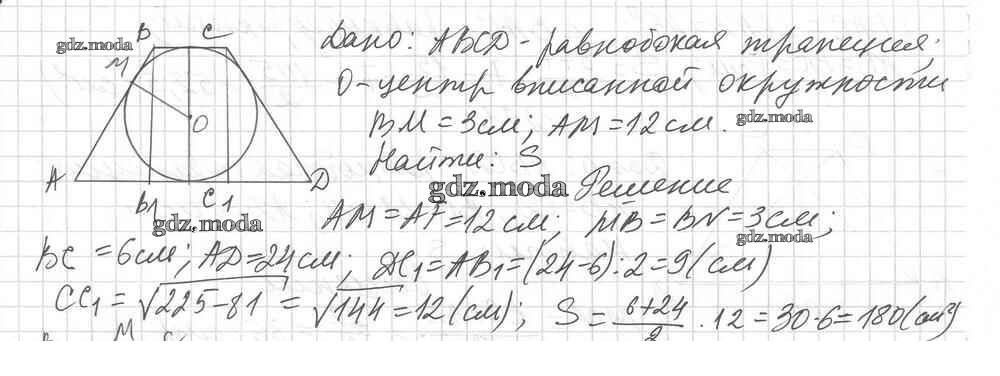 B C
gdz.moda
M
O
A D
B1 C1
gdz.moda
Дано: ABCD - равнобокая трапеция.
О-центр вписанной окружности
BM = 3 см; AM = 12 см.
gdz.moda
Найти: S
gdz.moda
Решение
AM = AF = 12 см; MB = BN = 3 см;
gdz.moda
BC = 6 см; AD = 24 см; DC1 = AB1 = (24-6) : 2 = 9 (см)
CC1 = √225-81 = √144 = 12 (см); S = 6+24/2 · 12 = 30·6 = 180 (см²)
M